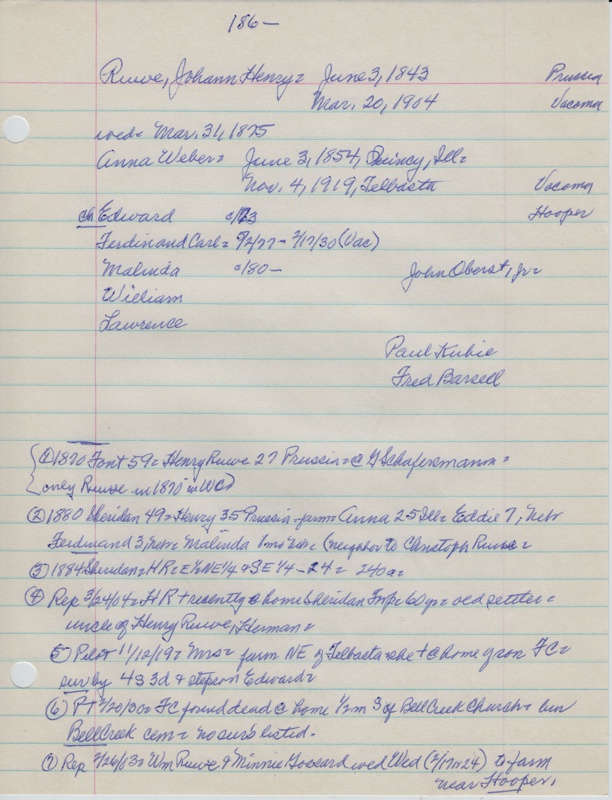 186-
Ruwe, Johann Henry= June 3, 1843 Prussia
Mar. 20, 1904 Vacoma
wed= Mar. 31, 1875
Anna Weber= June 3, 1854, Quincy, Ill=
Nov. 4, 1919, Telbasta Vacoma
ch Edward c/73 Hooper
Ferdinand Carl= 5/2/77- 2/17/30 (Vac)
Malinda c/80- John Oberst, Jr=
William
Lawrence
Paul Kubie
Fred Barsell
① 1870 Font 59= Henry Ruwe 27 Prussia= @ G Schafersmann=
(only Ruwe in 1870 in WC)
② 1880 Sheridan 49= Henry 35 Prussia- farm= Anna 25 Ill= Eddie 7, Nebr
Ferdinand 3, Nebr= Malinda 1mo Nebr= (neighbor to Christoph Ruwe=
③ 1884 Sheridan= HR= E½NE¼ & SE¼-24= 240a=
④ Rep 3/24/04= HR + recently @ home Sheridan Twp= 60 yr= old settler=
uncle of Henry Ruwe, Herman=
⑤ Pilot 11/12/19= Mrs= farm NE of Telbasta she + @ home of son FC=
sur by 4S 3d & stepson Edward=
⑥ PT 2/20/30= FC found dead @ home ½m S of Bell Creek Church= bur
Bell Creek cem= no surs listed.
⑦ Rep 2/26/03= Wm Ruwe & Minnie wed Wed to farm
near Hooper.